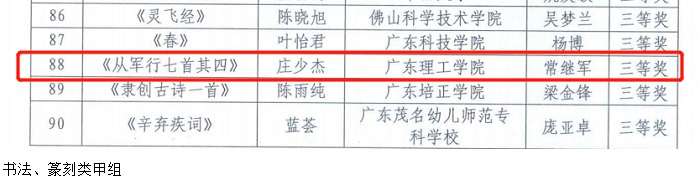 86 《灵飞经》 陈晓旭 佛山科学技术学院 吴梦兰 三等奖
87 《春》 叶怡君 广东科技学院 杨博 三等奖
88 《从军行七首其四》 庄少杰 广东理工学院 常继军 三等奖
89 《隶创古诗一首》 陈雨纯 广东培正学院 梁金锋 三等奖
90 《辛弃疾词》 蓝荟 广东茂名幼儿师范专
科学校 庞亚卓 三等奖
书法、篆刻类甲组